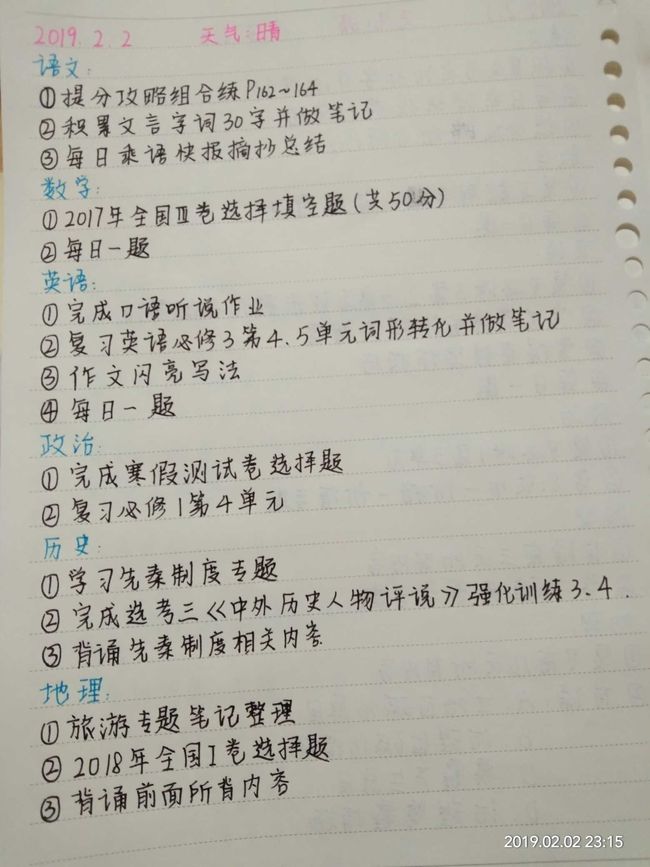 2019.2.2 天气:晴
语文:
①提分攻略组合练P162~164
②积累文言字词30字并做笔记
③每日乘语快报摘抄总结
数学:
①2017年全国Ⅲ卷选择填空题(共50分)
②每日一题
英语:
①完成口语听说作业
②复习英语必修3第4.5单元词形转化并做笔记
③作文闪亮写法
④每日一题
政治:
①完成寒假测试卷选择题
②复习必修1第4单元
历史:
①学习先秦制度专题
②完成选考三《中外历史人物评说》强化训练3.4.
③背诵先秦制度相关内容
地理:
①旅游专题笔记整理
②2018年全国I卷选择题
③背诵前面所背内容
2019.02.02 23:15